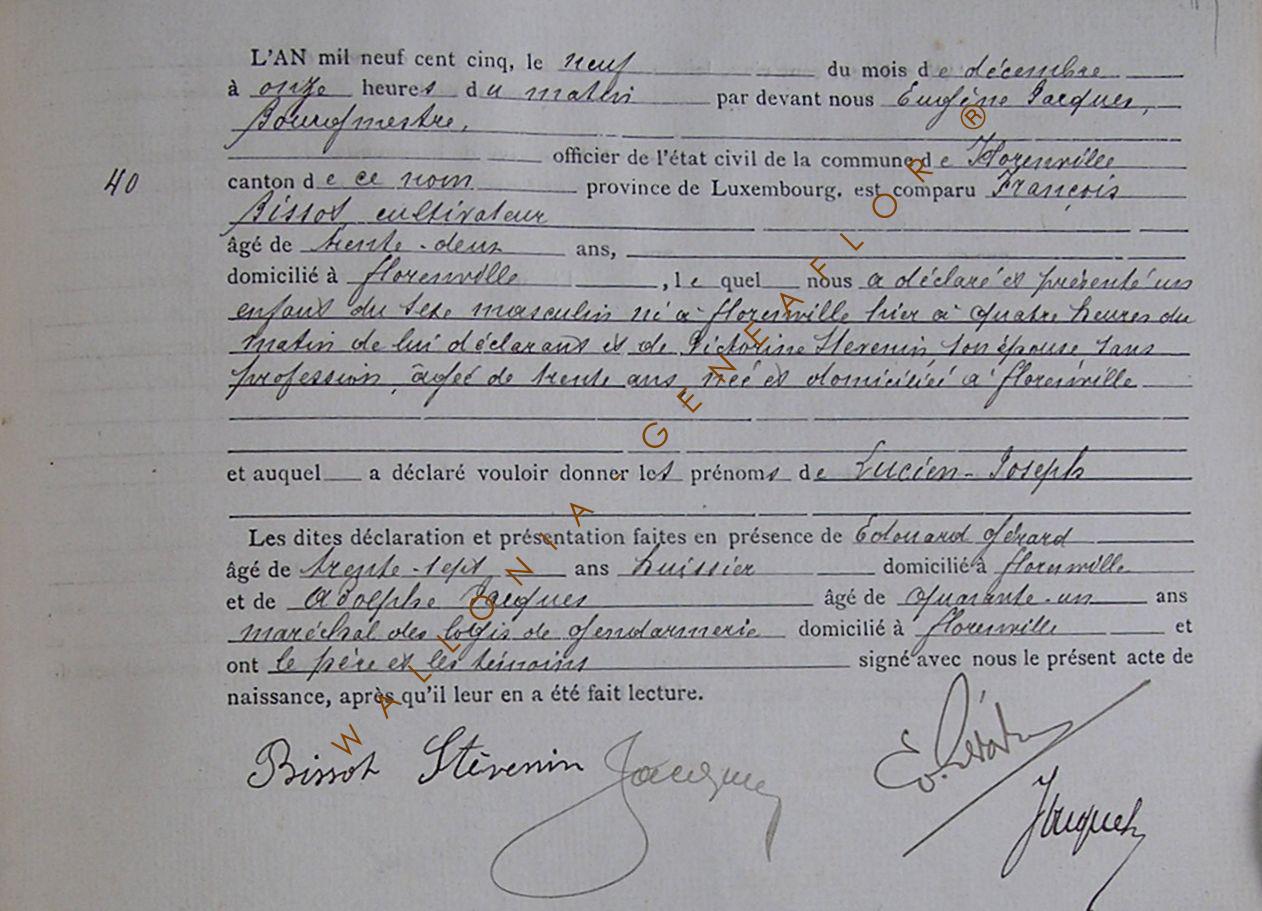 L'AN mil neuf cent cinq, le neuf du mois de décembre
à onze heures du matin par devant nous Eugène Jacques,
Bourgmestre,
officier de l'état civil de la commune de Florenville
40
canton de ce nom province de Luxembourg, est comparu François
Bissot cultivateur
âgé de trente-deux ans,
domicilié à florenville, lequel nous a déclaré et présenté un
enfant du sexe masculin né à florenville hier à quatre heures du
matin de lui déclarant et de Victorine Stevenin, son épouse sans
profession, âgée de trente ans née et domiciliée à florenville
et auquel a déclaré vouloir donner les prénoms de Lucien-Joseph
Les dites déclaration et présentation faites en présence de Edouard Gérard
âgé de trente-sept ans huissier domicilié à florenville
et de Adolphe Jacques âgé de quarante-un ans
maréchal des logis de gendarmerie domicilié à florenville et
ont le père et les témoins signé avec nous le présent acte de
naissance, après qu'il leur en a été fait lecture.
Bissot Stèvenin Jacques Ed. Gérard
Jacques
WALLONIA GENEAFLOR ®